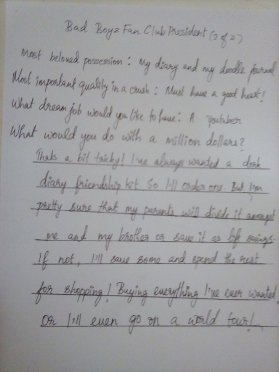 Bad Boyz Fan Club President (2 of 2)
Most beloved possession: My diary and my doodle journal
Most important quality in a crush: Must have a good heart!
What dream job would you like to have: A youtuber
What would you do with a million dollars?
Thats a bit tricky! I've always wanted a dork
diary friendship kit so I'll order one. But I'm
pretty sure that my parents will divide it amongst
me and my brother or save it as life savings
If not, I'll save some and spend the rest
for shopping! Buying everything I've ever wanted
Or I'll even go on a world tour!